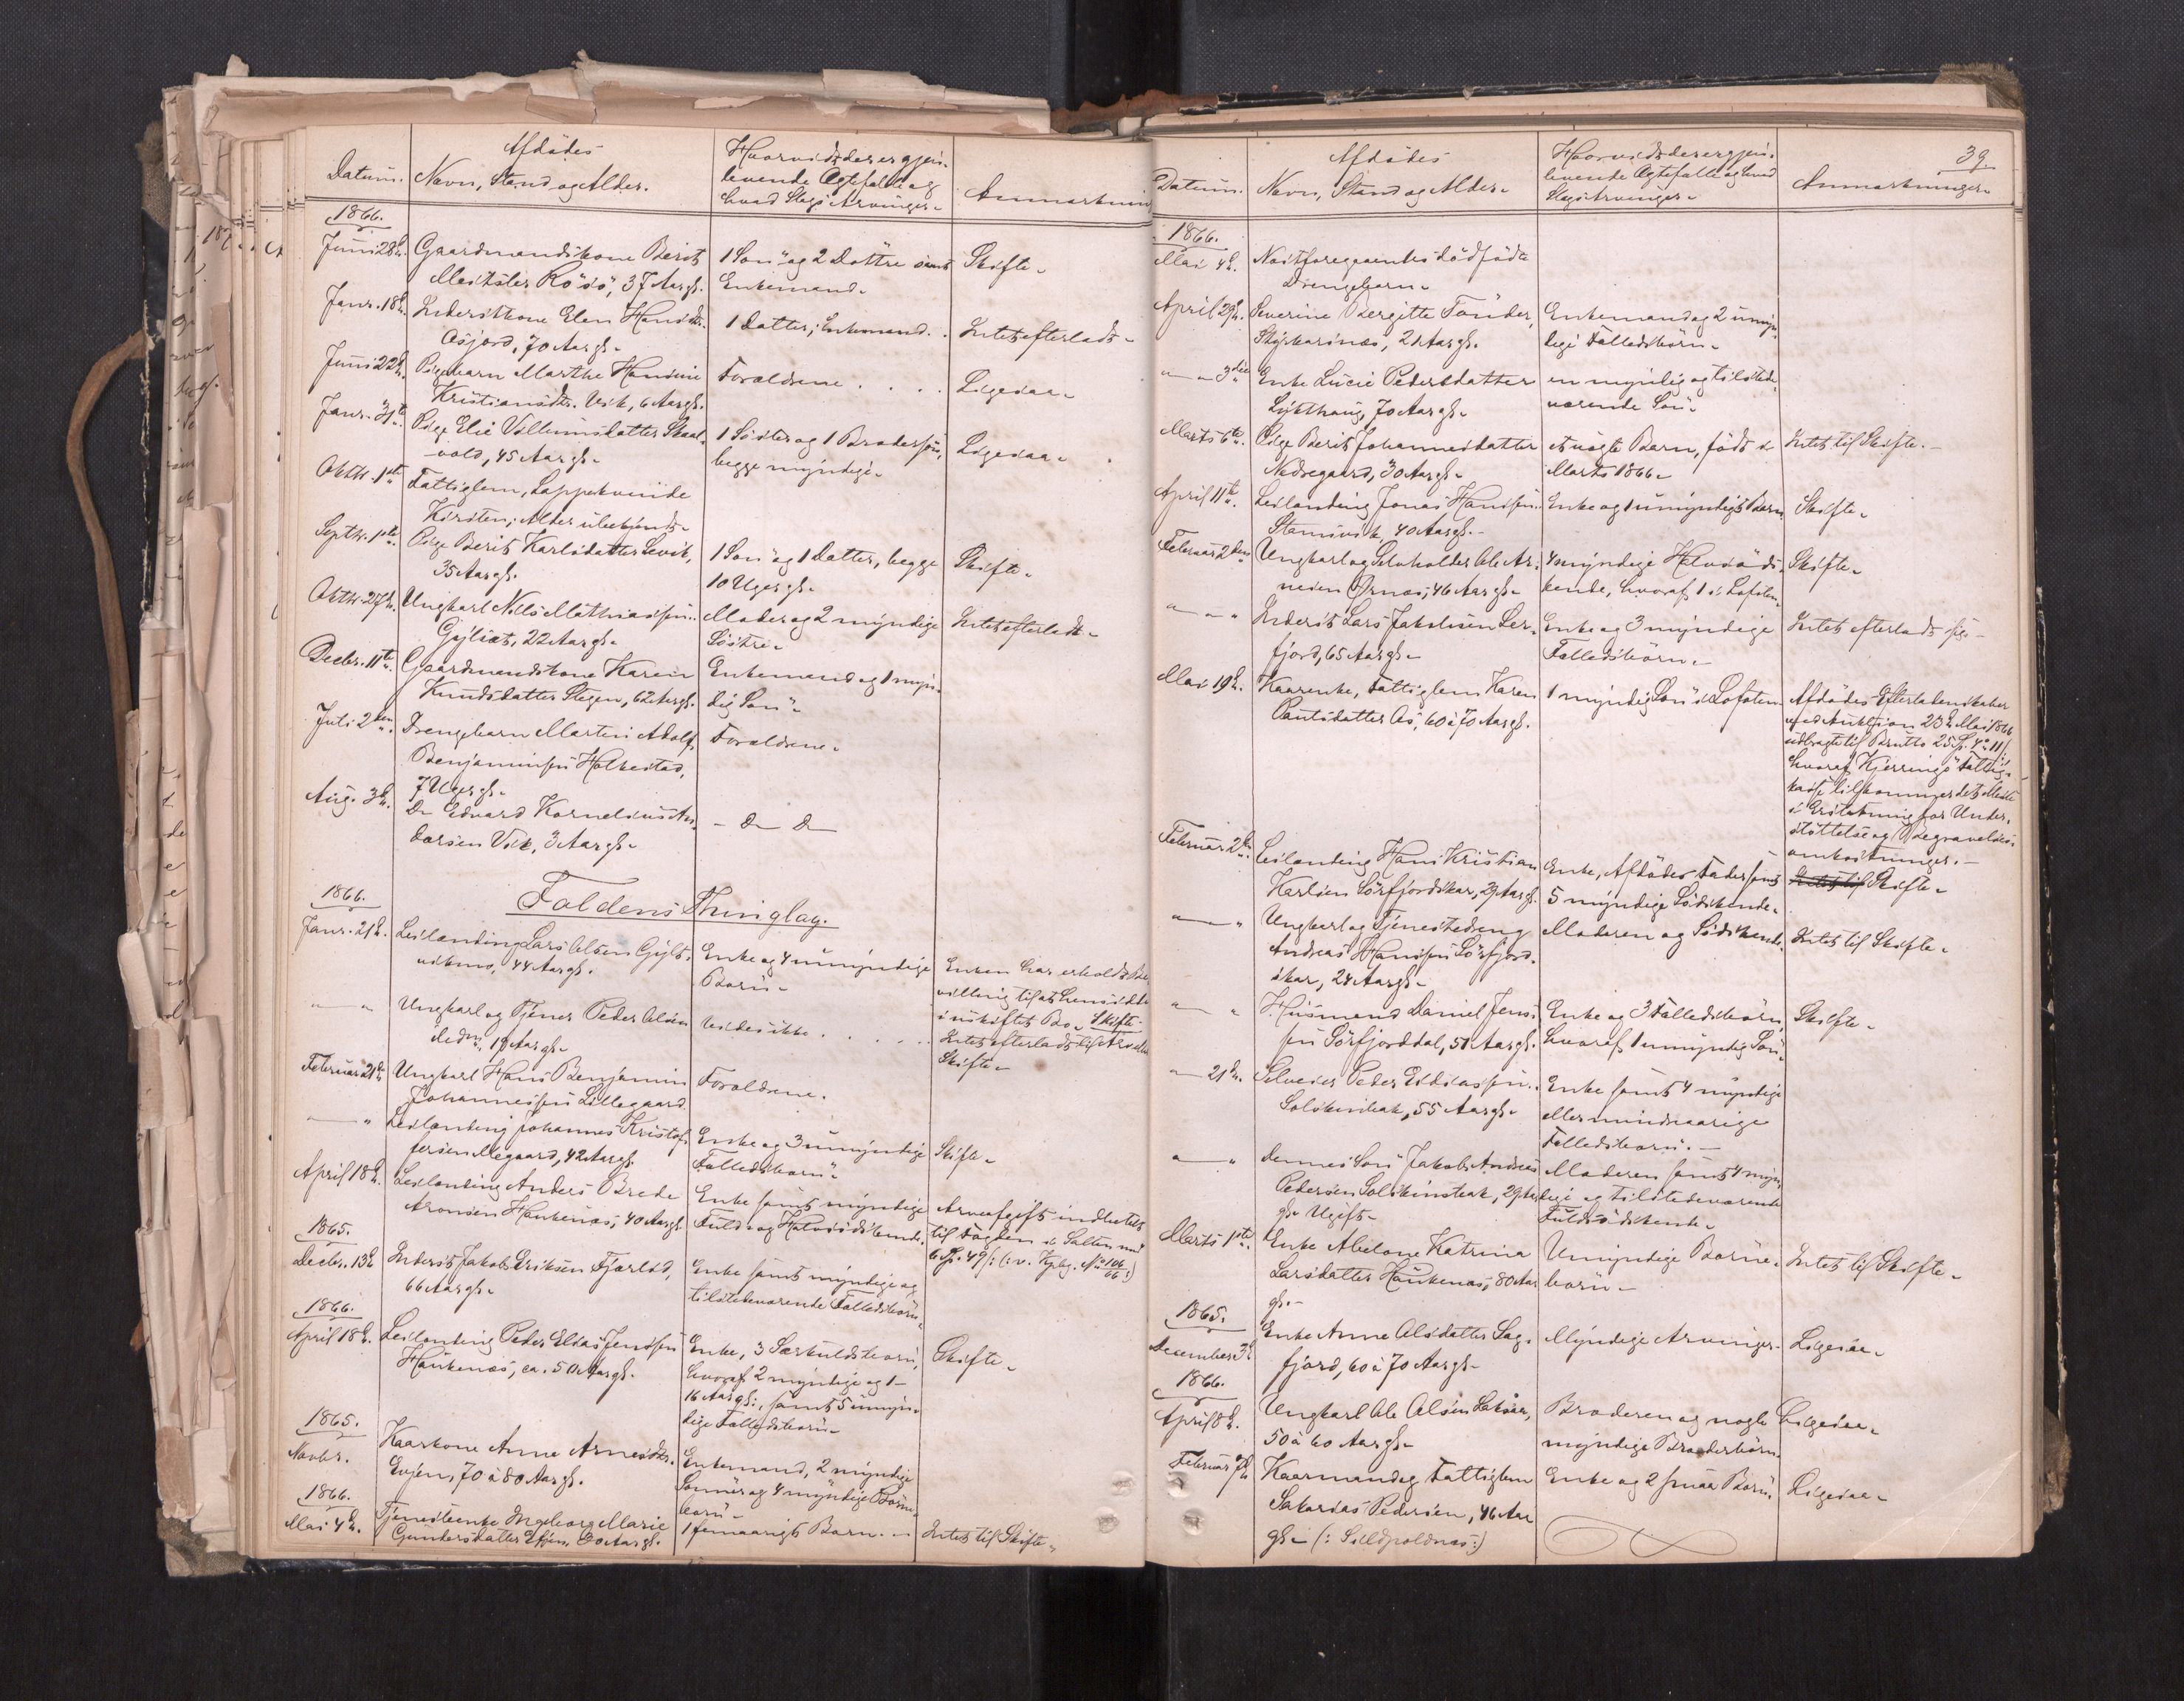 Datum.
Afdødes
Navn, Stand og Alder.
Hvorvidt der er gjen-
levende Ægtefælle og
hvad Slags Arvinger.
1866.
Juni 28de.
Gaardmandskone Berit
37 Aar gl.
1 Søn og 2 Døttre samt
Enkemand.
Skifte.
Janr. 18de.
Inderstkone Elen Hansdtr.
Åsjord, 70 Aar gl.
1 Datter; Enkemand.
Intet efterladt.
Juni 22de.
Pigebarn Marthe Hansine
Kristiansdtr. Vik, 6 Aar gl.
Forældrene
Ligesaa.
Janr. 31te.
Pige Elie Villumsdatter Skaal-
vold, 45 Aar gl.
1 Søster og 1 Brodersøn,
begge myndige.
Ligesaa.
Oktbr. 1ste.
Fattiglem, Lappekvinde
Kirsten; Alder ubekjendt.
Septbr. 1ste.
Pige Berit Karlsdatter Levik,
35 Aar gl.
1 Søn og 1 Datter, begge
10 Uger gl.
Skifte.
Oktbr. 27de.
Ungkarl Nils Mathiassen
22 Aar gl.
Moder og 2 myndige
Søstre.
Intet efterladt.
Decbr. 11te.
Gaardmandskone Karen
Knudsdatter Stegen, 62 Aar gl.
Enkemand og 1 myn-
dig Søn.
Juli 2den.
Drengebarn Martin Adolf
Benjaminsen Holkestad,
7 Uger gl.
Forældrene.
Aug. 3de.
Do Edvard Kornelius An-
dorsen Vik, 3 Aar gl.
– Do Do
Foldens Thinglag.
1866.
Janr. 21de.
Leilænding Lars Olsen Gylt-
viknes, 44 Aar gl.
Enke og 4 umyndige
Børn.
Enken har erholdt Be-
villing til at hensidde
i uskiftet Bo. Skifte.
" "
Ungkarl og Tjener Peder Olsen
19 Aar gl.
Vides ikke.
Intet efterladt til
Skifte.
Februar 21de
Ungkarl Hans Benjamin
Johannessen Lillegaard.
Forældrene.
"
Leilænding Johannes Kristof-
fersen Megaard, 42 Aar gl.
Enke og 3 umyndige
Fællesbørn.
Skifte.
April 18de.
Leilænding Anders Brede
Aronsen Haukenæs, 40 Aar gl.
Enke samt myndige
Fuld- og Halvsødskende.
Arveafgift indbetalt
til Fogden i Salten med
1865.
Decbr. 13de
Inderst Jakob Eriksen Fjærbod,
66 Aar gl.
Enke samt myndige og
tilstedeværende Fællesbørn.
1866.
April 18de.
Leilænding Peder Elias Jensen
Haukenæs, ca. 50 Aar gl.
Enke, 3 Særkuldsbørn,
hvoraf 2 myndige og 1 –
16 Aar gl., samt 5 umyn-
dige Fællesbørn.
Skifte.
1865.
Novbr.
Kaarkone Anne Arnesdtr.
Evjen, 70 à 80 Aar gl.
Enkemand, 2 myndige
Sønner og 4 myndige Børne-
børn.
1866.
Mai 4de.
Tjenesteenke Ingeborg Marie
Gundersdatter Evjen, 30 Aar gl.
1 femaarigt Barn.
Intet til Skifte.
39
Datum.
Afdødes
Navn, Stand og Alder.
Hvorvidt der er gjen-
levende Ægtefælle og hvad
Slags Arvinger.
Anmærkninger.
1866.
Mai 4de.
Næstforegaaendes dødfødte
Drengebarn.
April 29de.
Severine Bergitte Tønder,
Skjærsnæs, 21 Aar gl.
Enkemand og 2 umyn-
dige Fællesbørn.
" – 3die
Enke Lucie Pedersdatter
70 Aar gl.
en myndig og tilstede-
værende Søn.
Marts 6te.
Pige Berit Johannesdatter
Nedregaard, 30 Aar gl.
et uægte Barn, født i
Marts 1866.
Intet til Skifte.
April 11te.
Leilænding Jonas Hansen
Stamsvik, 40 Aar gl.
Enke og 1 umyndigt Barn
Skifte.
Februar 2den
Ungkarl og Selveholder Ole Ar-
nesen Ørnes, 46 Aar gl.
4 myndige Halvsøds-
kende, hvoraf 1 i Lofoten.
Skifte.
" – "
Inderst Lars Jakobsen Ler-
fjord, 65 Aar gl.
Enke og 3 myndige
Fællesbørn.
Intet efterladt sig.
Mai 19de.
Kaarenke, Fattiglem Karen
Pantsdatter Ås, 60 à 70 Aar gl.
1 myndig Søn i Lofoten.
Afdødes Efterladenskaber
ved Auktion 23de Mai 1866
udbragte til Brutto 25
hvoraf Kjerringø Fattig-
kasse tilkommer det Meste
i Erstatning for Under-
støttelse og Begravelses-
omkostninger.
Februar 2den
Leilænding Hans Kristian
Karlsen Sørfjordskar, 29 Aar gl.
Enke, Afdødes Fader samt
5 myndige Sødskende.
Intet til Skifte.
" – "
Ungkarl og Tjenestedreng
Andreas Hansen Sørfjord-
skar, 24 Aar gl.
Moderen og Sødskende.
Intet til Skifte.
" – "
Husmand Daniel Jens-
sen Sørfjorddal, 51 Aar gl.
Enke og 3 Fællesbørn,
hvoraf 1 umyndig Søn.
Skifte.
" – 21de.
Selveier Peder Eliassen
Solskinsbak, 55 Aar gl.
Enke samt 4 myndige
eller mindreaarige
Fællesbørn.
" – "
dennes Søn Jakob Andreas
Pedersen Solskinsbak, 29 Aar
gl. Ugift.
Moderen samt 4 myn-
dige og tilstedeværende
Fuldsødskende.
Marts 1ste.
Enke Abelone Katrina
Larsdatter Haukenæs, 80 Aar
gl.
Umyndige Børne-
børn.
Intet til Skifte.
1865.
December 3de
Enke Anne Olsdatter Sag-
fjord, 60 à 70 Aar gl.
Myndige Arvinger.
Ligesaa.
1866.
April 8de.
Ungkarl Ole Olsen Laksaa,
50 à 60 Aar gl.
Broderen og nogle
myndige Broderbørn.
Ligesaa.
Februar
Kaarmand og Fattiglem
Sakarias Pedersen, 46 Aar
gl. (: Sildpoldnæs :)
Enke og 2 smaa Børn.
Ligesaa.